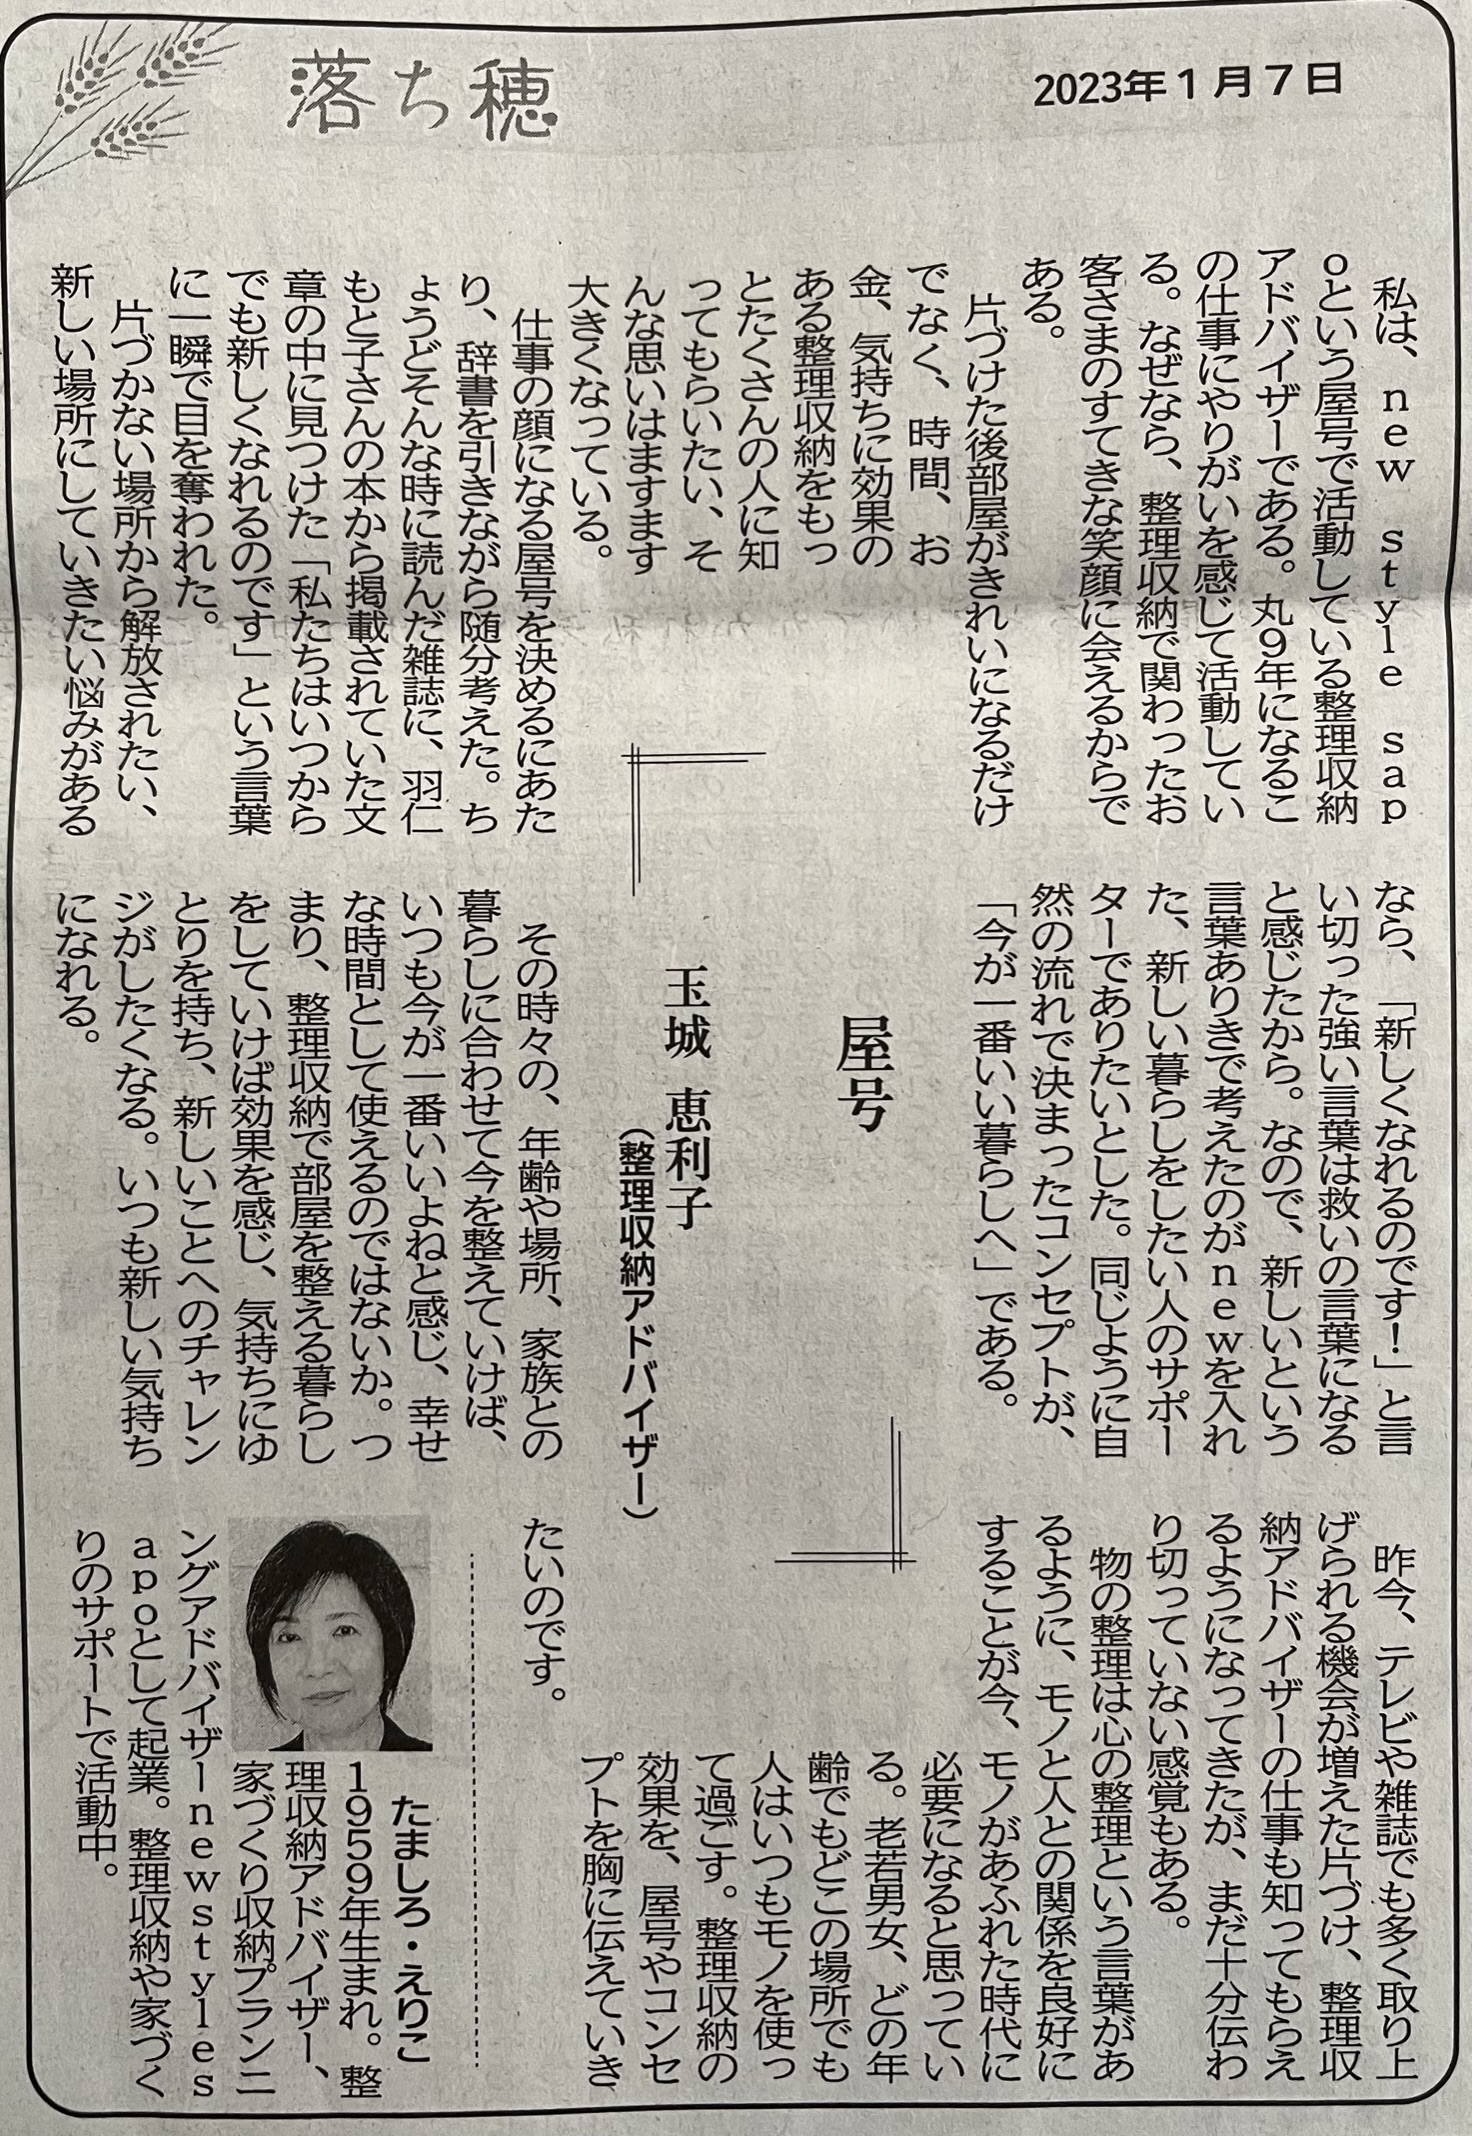 落ち穂
2023年1月7日
私は、new style sap
oという屋号で活動している整理収納
アドバイザーである。丸9年になるこ
の仕事にやりがいを感じて活動してい
る。なぜなら、整理収納で関わったお
客さまのすてきな笑顔に会えるからで
ある。
片づけた後部屋がきれいになるだけ
でなく、時間、お
金、気持ちに効果の
ある整理収納をもっ
とたくさんの人に知
ってもらいたい、そ
んな思いはますます
大きくなっている。
仕事の顔になる屋号を決めるにあた
り、辞書を引きながら随分考えた。ち
ょうどそんな時に読んだ雑誌に、羽仁
もと子さんの本から掲載されていた文
章の中に見つけた「私たちはいつから
でも新しくなれるのです」という言葉
に一瞬で目を奪われた。
片づかない場所から解放されたい、
新しい場所にしていきたい悩みがある
屋号
玉城 恵利子
(整理収納アドバイザー)
なら、「新しくなれるのです!」と言
い切った強い言葉は救いの言葉になる
と感じたから。なので、新しいという
言葉ありきで考えたのがnewを入れ
た、新しい暮らしをしたい人のサポー
ターでありたいとした。同じように自
然の流れで決まったコンセプトが、
「今が一番いい暮らしへ」である。
その時々の、年齢や場所、家族との
暮らしに合わせて今を整えていけば、
いつも今が一番いいよねと感じ、幸せ
な時間として使えるのではないか。つ
まり、整理収納で部屋を整える暮らし
をしていけば効果を感じ、気持ちにゆ
とりを持ち、新しいことへのチャレン
ジがしたくなる。いつも新しい気持ち
になれる。
昨今、テレビや雑誌でも多く取り上
げられる機会が増えた片づけ、整理収
納アドバイザーの仕事も知ってもらえ
るようになってきたが、まだ十分伝わ
り切っていない感覚もある。
物の整理は心の整理という言葉があ
るように、モノと人との関係を良好に
することが今、モノがあふれた時代に
必要になると思ってい
る。老若男女、どの年
齢でもどこの場所でも
人はいつもモノを使っ
て過ごす。整理収納の
効果を、屋号やコンセ
プトを胸に伝えていき
たいのです。
たましろ・えりこ
1959年生まれ。整
理収納アドバイザー、
家づくり収納プランニ
ングアドバイザーnewstyles
apoとして起業。整理収納や家づく
りのサポートで活動中。